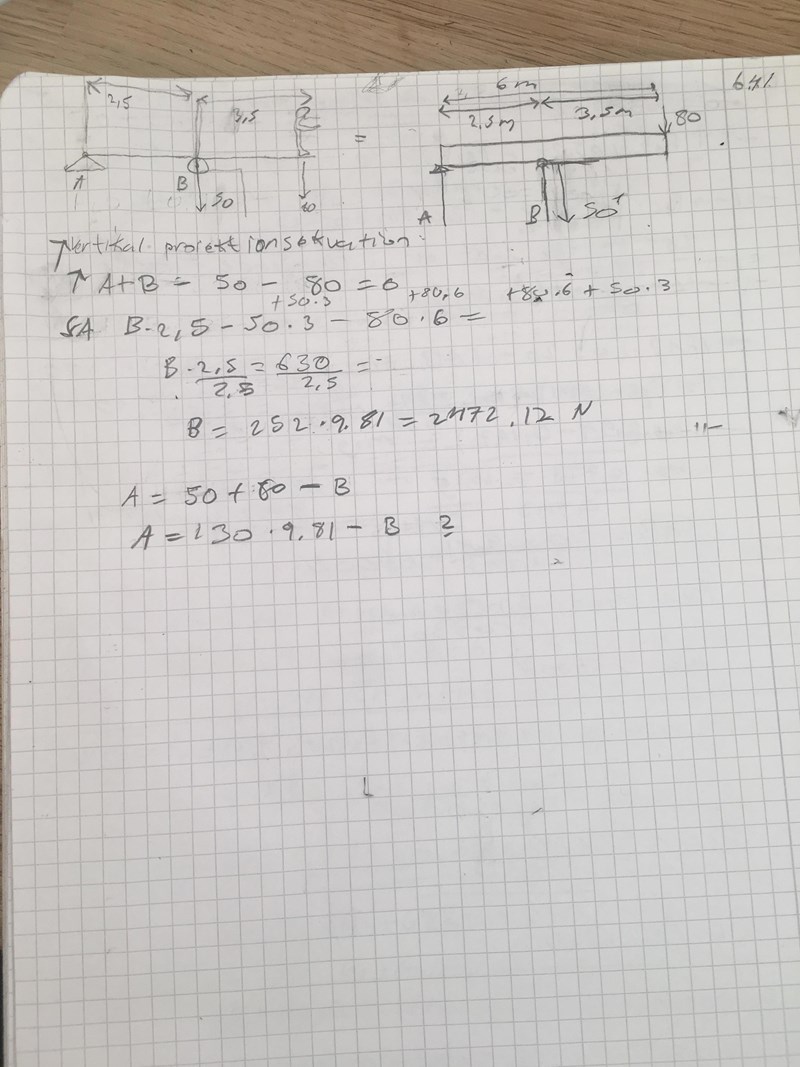 6 m
2,5
3,5
2,5m
3,5m
80
=
A
B
50
A
B
50
Vertikal projektionsekvation:
↑ A+B = 50 - 80 = 0
+50.3 +80.6 +80.6 + 50.3
A B·2,5 - 50·3 - 80·6 =
B·2,5 = 630 =
2,5 2,5
B = 252·9.81 = 2472.12 N
A = 50 + 80 - B
A = 130·9.81 - B ?